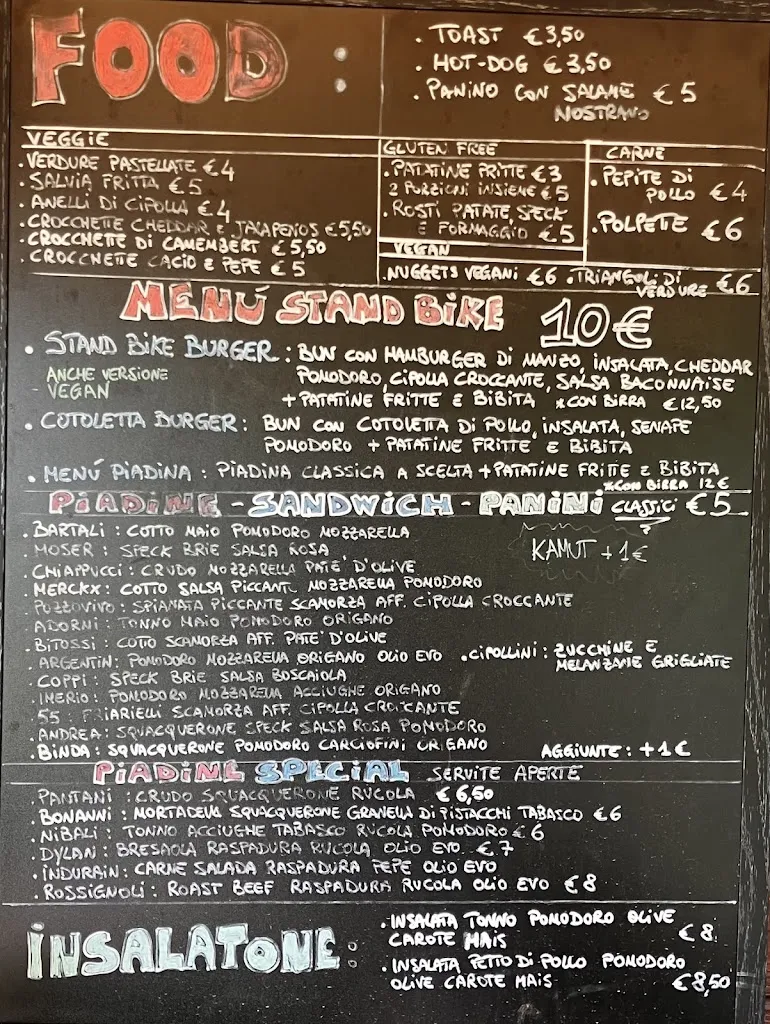 FOOD :
. TOAST €3,50
. HOT-DOG €3,50
. PANINO CON SALAME €5
NOSTRANO
VEGGIE
. VERDURE PASTELLATE €4
. SALVIA FRITTA €5
. ANELLI DI CIPOLLA €4
. CROCCHETTE CHEDDAR E JALAPENOS €5,50
. CROCCHETTE DI CAMEMBERT €5,50
. CROCCHETTE CACIO E PEPE €5
GLUTEN FREE
. PATATINE FRITTE €3
2 PORZIONI INSIEME €5
. ROSTI PATATE, SPECK
E FORMAGGIO €5
CARNE
. PEPITE DI
POLLO €4
. POLPETE €6
VEGAN
. NUGGETS VEGANI €6 . TRIANGOLI DI
VERDURE €6
MENÚ STAND BIKE 10€
. STAND BIKE BURGER : BUN CON HAMBURGER DI MANZO, INSALATA, CHEDDAR
ANCHE VERSIONE POMODORO, CIPOLLA CROCCANTE, SALSA BACONNAISE
- VEGAN + PATATINE FRITTE E BIBITA *CON BIRRA €12,50
. COTOLETTA BURGER : BUN CON COTOLETTA DI POLLO, INSALATA, SENAPE
POMODORO + PATATINE FRITTE E BIBITA
. MENÚ PIADINA : PIADINA CLASSICA A SCELTA + PATATINE FRITTE E BIBITA
*CON BIRRA 12€
PIADINE - SANDWICH - PANINI CLASSICI €5
. BARTALI : COTTO MAIO POMODORO MOZZARELLA
. MOSER : SPECK BRIE SALSA ROSA
KAMUT +1€
. CHIAPPUCCI : CRUDO MOZZARELLA PATE' D'OLIVE
. MERCKX : COTTO SALSA PICCANTE MOZZARELLA POMODORO
. POZZOVIVO : SPIANATA PICCANTE SCAMORZA AFF. CIPOLLA CROCCANTE
. ADORNI : TONNO MAIO POMODORO ORIGANO
. BITOSSI : COTTO SCAMORZA AFF. PATE' D'OLIVE
. ARGENTIN : POMODORO MOZZARELLA ORIGANO OLIO EVO . CIPOLLINI : ZUCCHINE E
MELANZANE GRIGLIATE
. COPPI : SPECK BRIE SALSA BOSCAIOLA
. IMERIO : POMODORO MOZZARELLA ACCIUGHE ORIGANO
. 55 : FRIARIELLI SCAMORZA AFF. CIPOLLA CROCCANTE
. ANDREA : SQUACQUERONE SPECK SALSA ROSA POMODORO
. BINDA : SQUACQUERONE POMODORO CARCIOFINI ORIGANO AGGIUNTE : +1€
PIADINE SPECIAL SERVITE APERTE
. PANTANI : CRUDO SQUACQUERONE RUCOLA €6,50
. BONANNI : MORTADELLA SQUACQUERONE GRANELLA DI PISTACCHI TABASCO €6
. NIBALI : TONNO ACCIUGHE TABASCO RUCOLA POMODORO €6
. DYLAN : BRESAOLA RASPADURA RUCOLA OLIO EVO €7
. INDURAIN : CARNE SALADA RASPADURA PEPE OLIO EVO
. ROSSIGNOLI : ROAST BEEF RASPADURA RUCOLA OLIO EVO €8
INSALATONE :
. INSALATA TONNO POMODORO OLIVE
CAROTE MAIS €8
. INSALATA PETTO DI POLLO POMODORO
OLIVE CAROTE MAIS €8,50